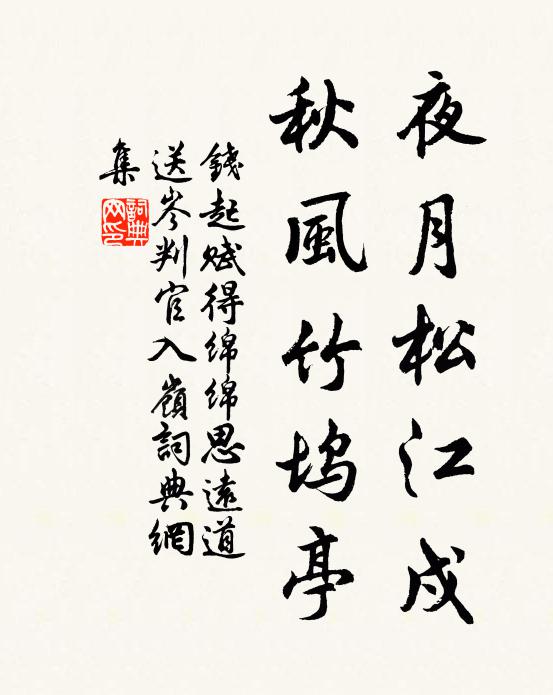 夜月松江戍
秋風竹塢亭
錢起賦得綿綿思遠道
送岑判官入嶺詞典網
集
詞典
網印